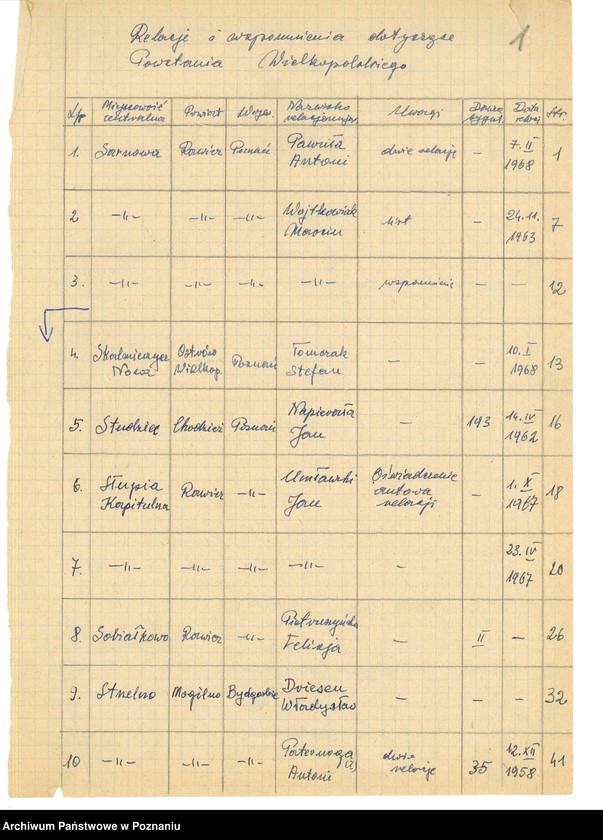 Relacje i wspomnienia dotyczące 1
Powstania Wielkopolskiego
L/p Miejscowość centralna Powiat Wojew. Nazwisko Uwagi Data relacji Str.
1. Sarnowa Rawicz Poznań Pawuła Antoni dwie relacje — 7. II 1968 1
2 —„— —„— —„— Wojtkowiak Marcin list — 24. 11. 1963 7
3. —„— —„— —„— —„— — — 12
4. Nowe Ostrów Wielkop. Poznań Tomorak Stefan — — 10. I 1968 13
5. Studziec Chodzież Poznań Napierała Jan 193 14. IV 1962 16
6. Słupia Kapitulna Rawicz —„— Umławski Jan Oświadczenie autora relacji — 1. X 1967 18
7. —„— —„— —„— —„— — 23. IV 1967 20
8. Sobiałkowo Rawicz —„— Pietruszyńska Felixja — II — 26
9. Strzelno Mogilno Bydgoskie Driesen Władysław — — — 32
10 —„— —„— —„— Antoni dwie relacje 35 12. XII 1958 41
Archiwum Państwowe w Poznaniu